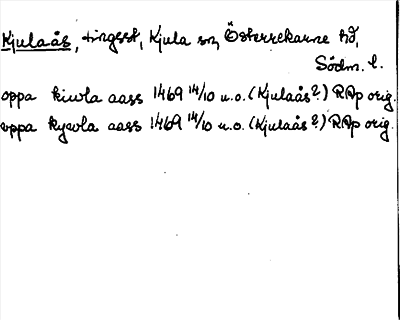 Kjulaås, tingsst, Kjula sn, Österrekarne hd,
Södm. l.
oppa kiwla aass 1469 14/10 u.o. (Kjulaås?) RAp orig.
vppa kywla aass 1469 14/10 u.o. (Kjulaås?) RAp orig.